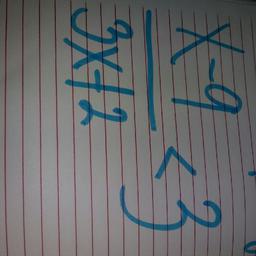 x-9
3x+2 < 3